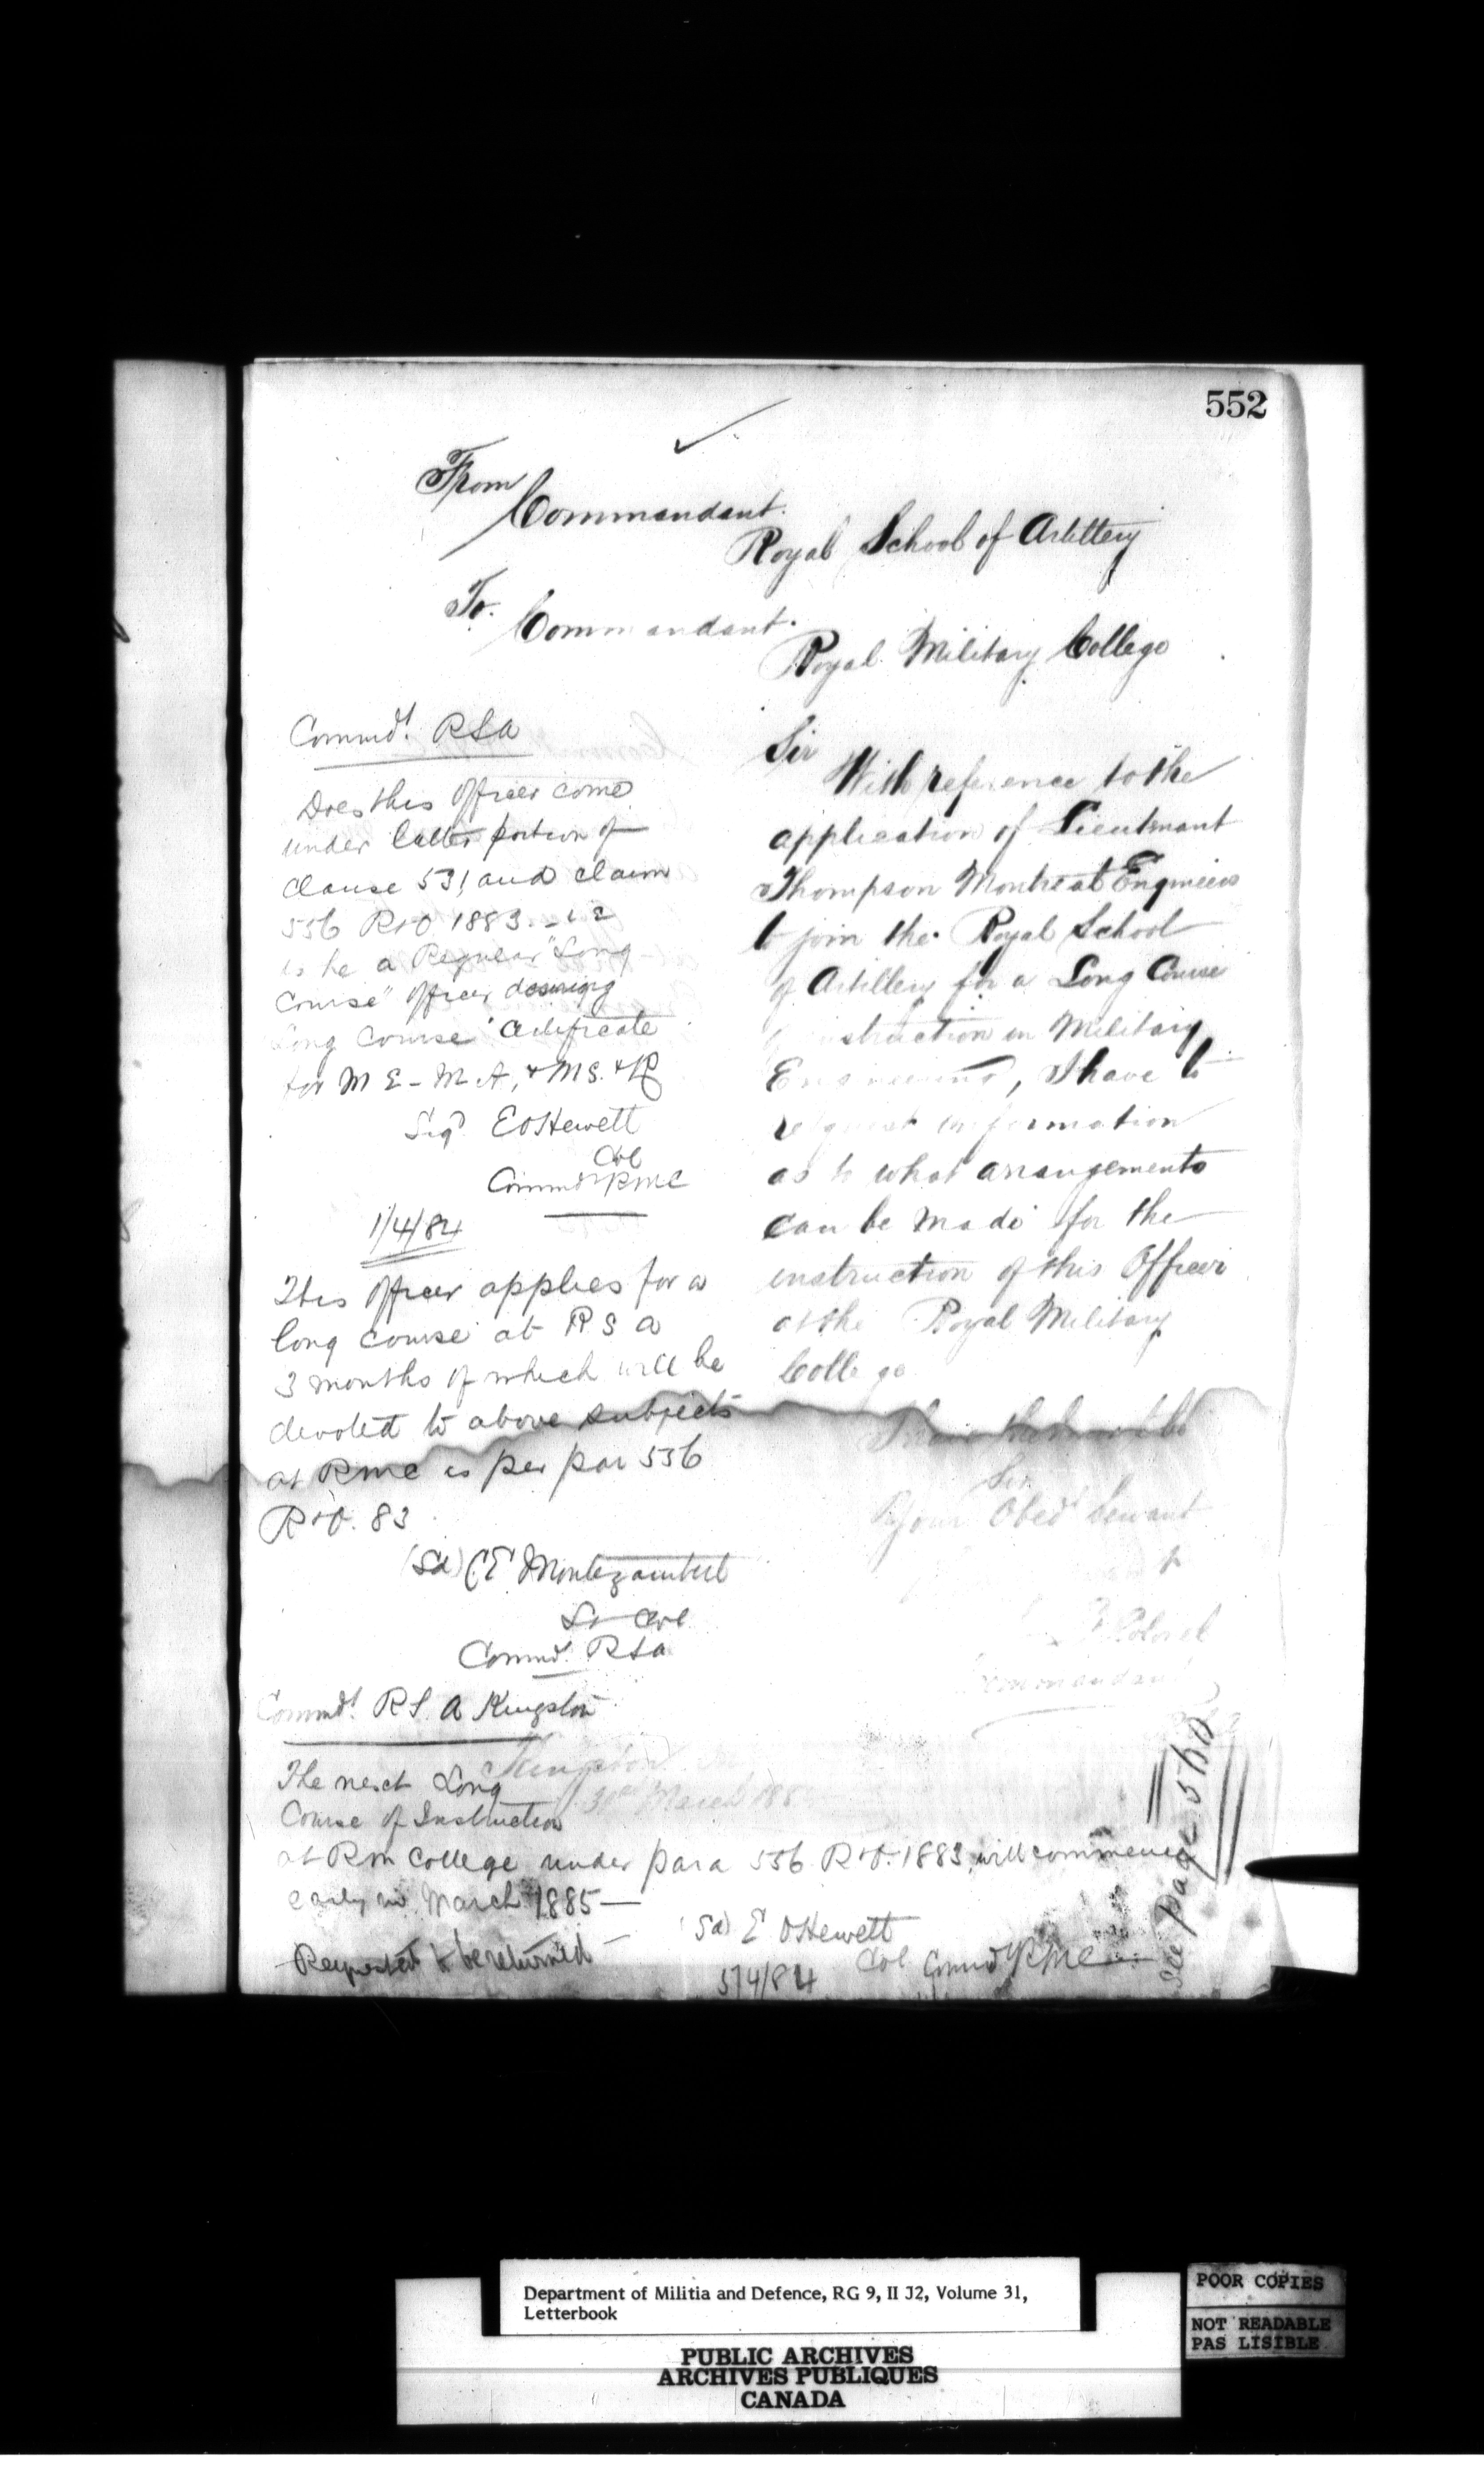 552
From
Commandant.
Royal School of Artillery
To.
Commandant.
Royal Military College
Sir
With reference to the
application of Lieutenant
Thompson Montreal Engineers
to join the Royal School
of Artillery for a Long Course
struction in Military
Engineering, I have to
request information
as to what arrangements
can be made for the
instruction of this Officer
at the Royal Military
College
Sir
Your Obedt Servant
Lt Colonel
Commandant
Kingston
30th March 188
Commdt. RSA
Does this Officer come
under latter portion of
Clause 531, and claim
536 R&O 1883. - i e
is he a Regular "Long
Course" Officer desiring
Long Course Certificate
for M E - M A, & MS. & R
Sigd. E O Hewett
Col
Commdt RMC
1/4/84
This Officer applies for a
long course at R S A
3 months of which will be
devoted to above subjects
at RMC as per par 536
R&O. 83
(Sd) C E Montizambert
Lt Col
Commdt. RSA
Commdt. R S. A Kingston
The next Long
Course of Instruction
at RM College under para 536. R&O. 1883, will commence
early in March 1885—
(Sd) E O Hewett
Col Commdt RMC
5/4/84
Requested to be returned —
see page 540
Department of Militia and Defence, RG 9, II J2, Volume 31,
Letterbook
PUBLIC ARCHIVES
ARCHIVES PUBLIQUES
CANADA
POOR COPIES
NOT READABLE
PAS LISIBLE